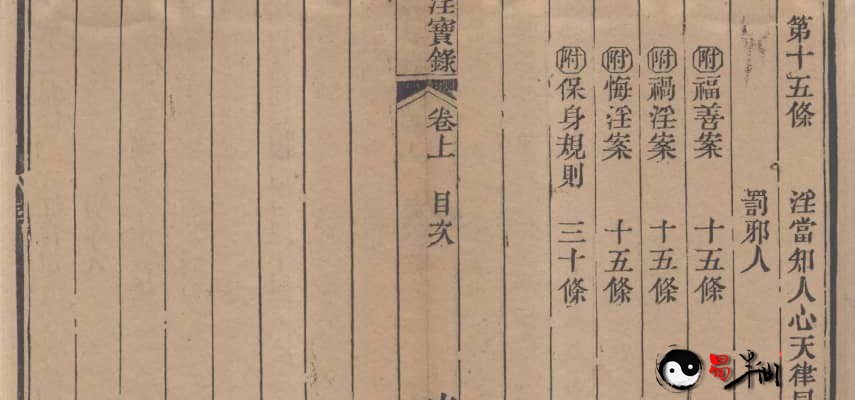 第十五條 淫當知人心天律
罰邪人
附福善案 十五條
附禍淫案 十五條
附悔淫案 十五條
附保身規則 三十條
淫寶錄 卷上 目次
易半仙